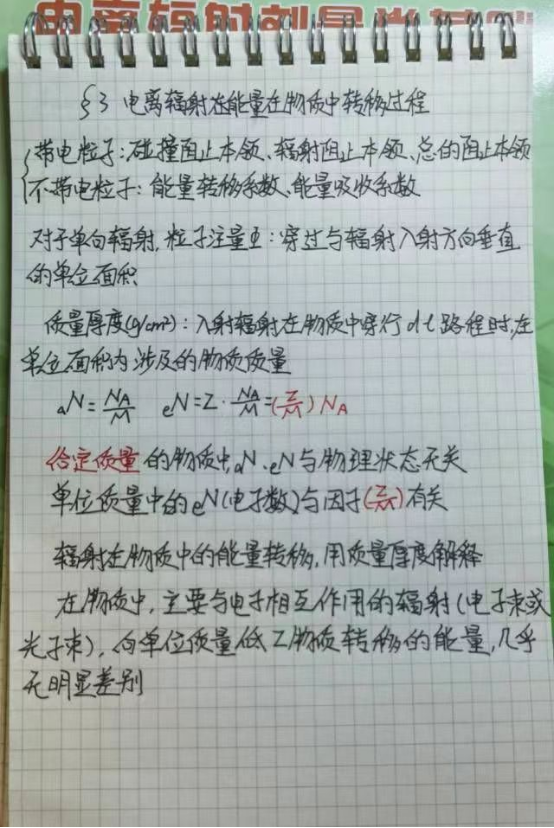 §3 电离辐射在能量在物质中转移过程
带电粒子:碰撞阻止本领、辐射阻止本领、总的阻止本领
不带电粒子:能量转移系数、能量吸收系数
对于单向辐射,粒子注量Φ:穿过与辐射入射方向垂直
的单位面积
质量厚度(g/cm²):入射辐射在物质中穿行dl路程时,在
单位面积内涉及的物质质量
aN=NA/M eN=Z·NA/M=(Z/M)NA
给定质量的物质中,aN、eN与物理状态无关
单位质量中的eN(电子数)与因子(Z/M)有关
辐射在物质中的能量转移,用质量厚度解释
在物质中,主要与电子相互作用的辐射(电子束或
光子束),向单位质量低Z物质转移的能量,几乎
无明显差别